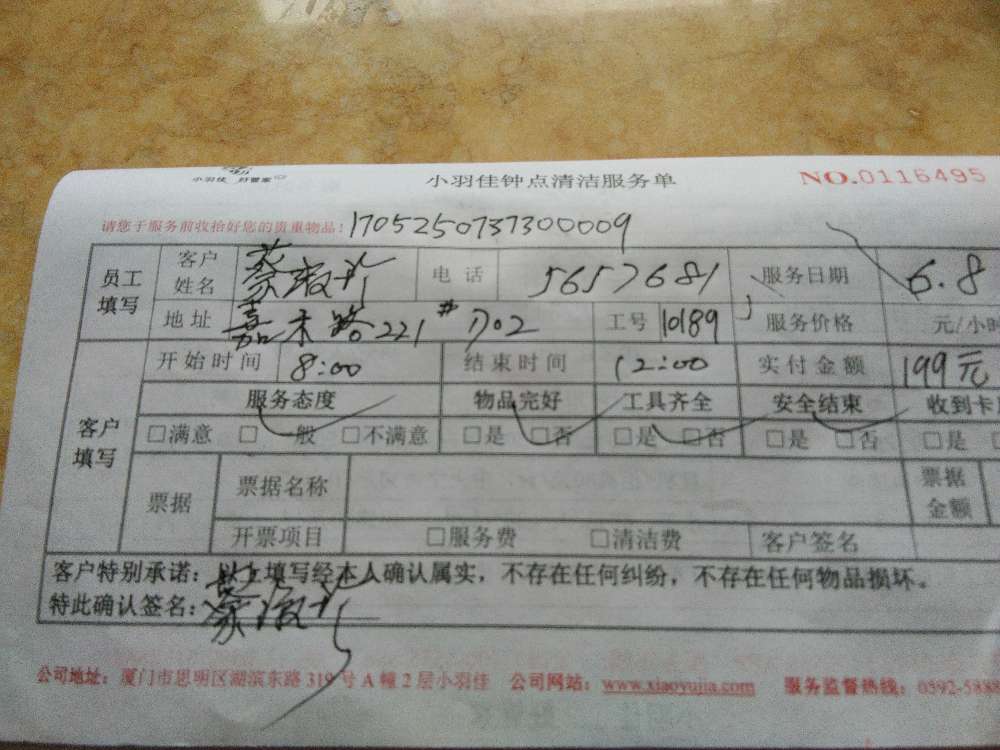 小羽佳 好管家
小羽佳钟点清洁服务单 NO.0116495
请您于服务前收拾好您的贵重物品! 1705250737300009
员工填写 客户姓名 电话 5657681 服务日期 6.8
地址 嘉禾路221# 1702 工号 10189 服务价格 元/小时
客户填写 开始时间 8:00 结束时间 12:00 实付金额 199元
服务态度 物品完好 工具齐全 安全结束 收到卡
□满意 □一般 □不满意 □是 □否 □是 □否 □是 □否 □是
票据 票据名称 票据金额
开票项目 □服务费 □清洁费 客户签名
客户特别承诺:以上填写经本人确认属实,不存在任何纠纷,不存在任何物品损坏。
特此确认签名:
公司地址:厦门市思明区湖滨东路319号A幢2层小羽佳 公司网站:www.xiaoyujia.com 服务监督热线:0592-5888